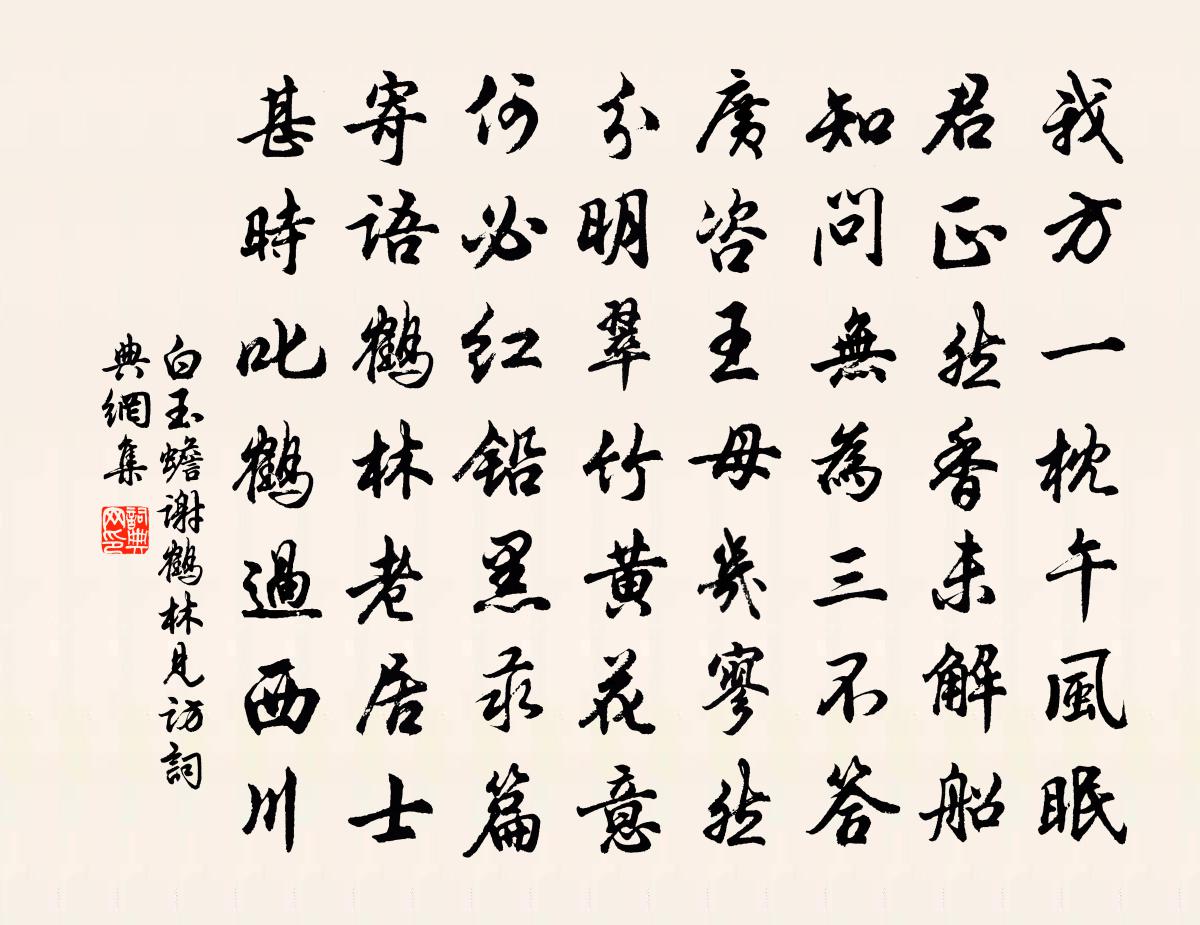 我方一枕午風眠
君正然香未解船
知問無為三不答
廣咨王母幾寥然
分明翠竹黃花意
何必紅鉛黑汞篇
寄語鶴林老居士
甚時叱鶴過西川
白玉蟾谢鶴林見访詞
典網集
詞典
网印